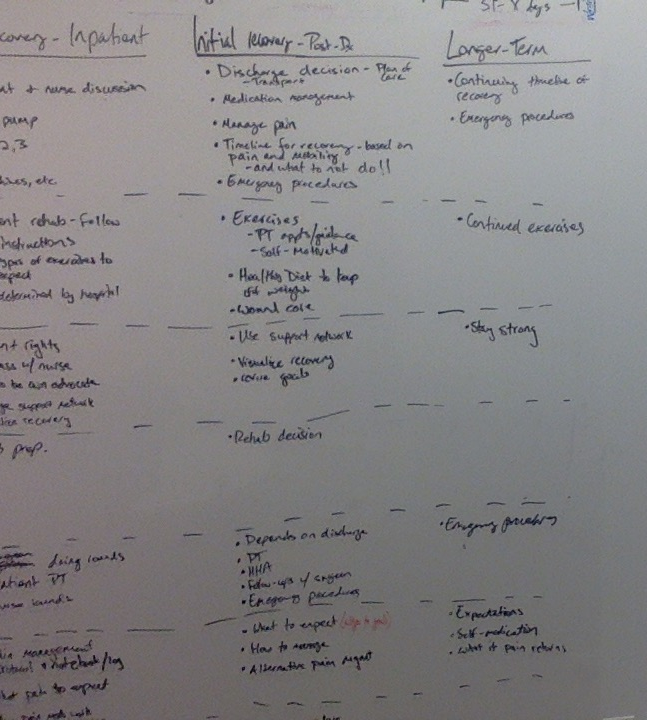 51-8 days
covery - Inpatient
nt + nurse discussion
pump
2,3
hines, etc
ent rehab - Follow
instructions
types of exercises to
expect
determined by hospital
nt rights
ass w/ nurse
to be own advocate
ge support network
lize recovery
b prep.
doing rounds
patient PT
nurse rounds
ain management
otocol + notebook/log
hat pain to expect
pain meds work
Initial recovery - Post-Dx
• Discharge decision - Plan of
care
- Transport
• Medication management
• Manage pain
• Timeline for recovery - based on
pain and mobility
- and what to not do!!
• Emergency procedures
• Exercises
- PT appts/guidance
- Self-Motivated
• Healthy Diet to keep
off weight
• Wound care
• Use support network
• Visualize recovery
• revise goals
• Rehab decision
• Depends on discharge
• PT
• HHA
• Follow-ups w/ surgeon
• Emergency procedures
• What to expect
• How to manage
• Alternative pain mgmt
Longer-Term
• Continuing timeline of
recovery
• Emergency procedures
• Continued exercises
• Stay strong
• Emergency procedures
• Expectations
• Self-medication
• What if pain returns